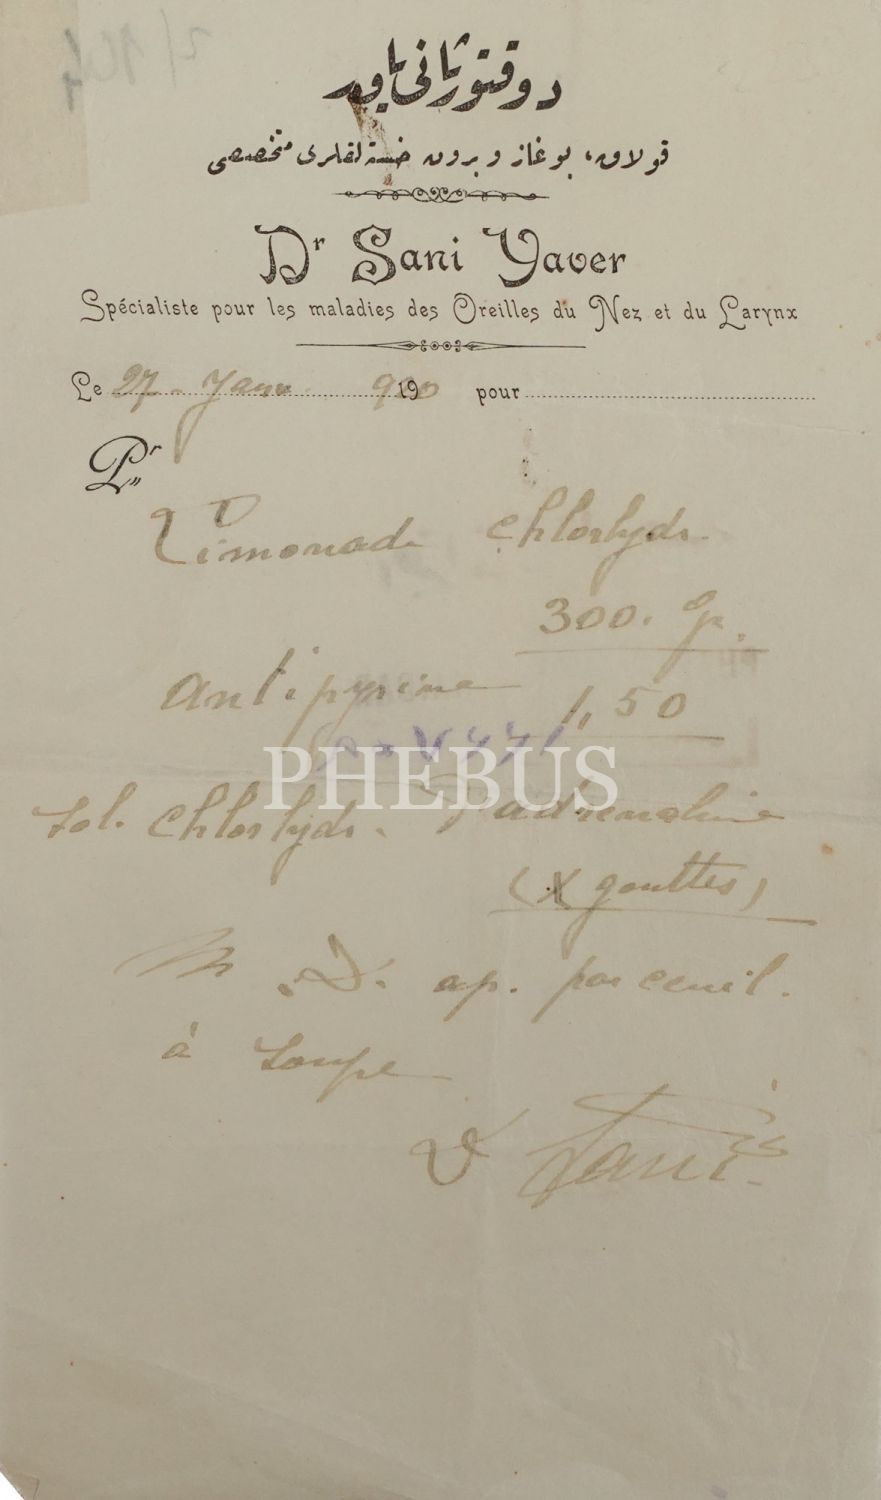 دوقتور ثانی یاور
قولاق، بوغاز و برون خسته‌لقلری متخصصی
Dr Sani Yaver
Spécialiste pour les maladies des Oreilles du Nez et du Larynx
Le 27 Janv 1900 pour
Pr
Limonade Chlorhydr.
300. gr.
antipyrine 1,50
PHEBUS
sol. Chlorhydr. d'adrenaline
(X gouttes)
M. D. ap. par ceuil.
à soupe
Dr Sani